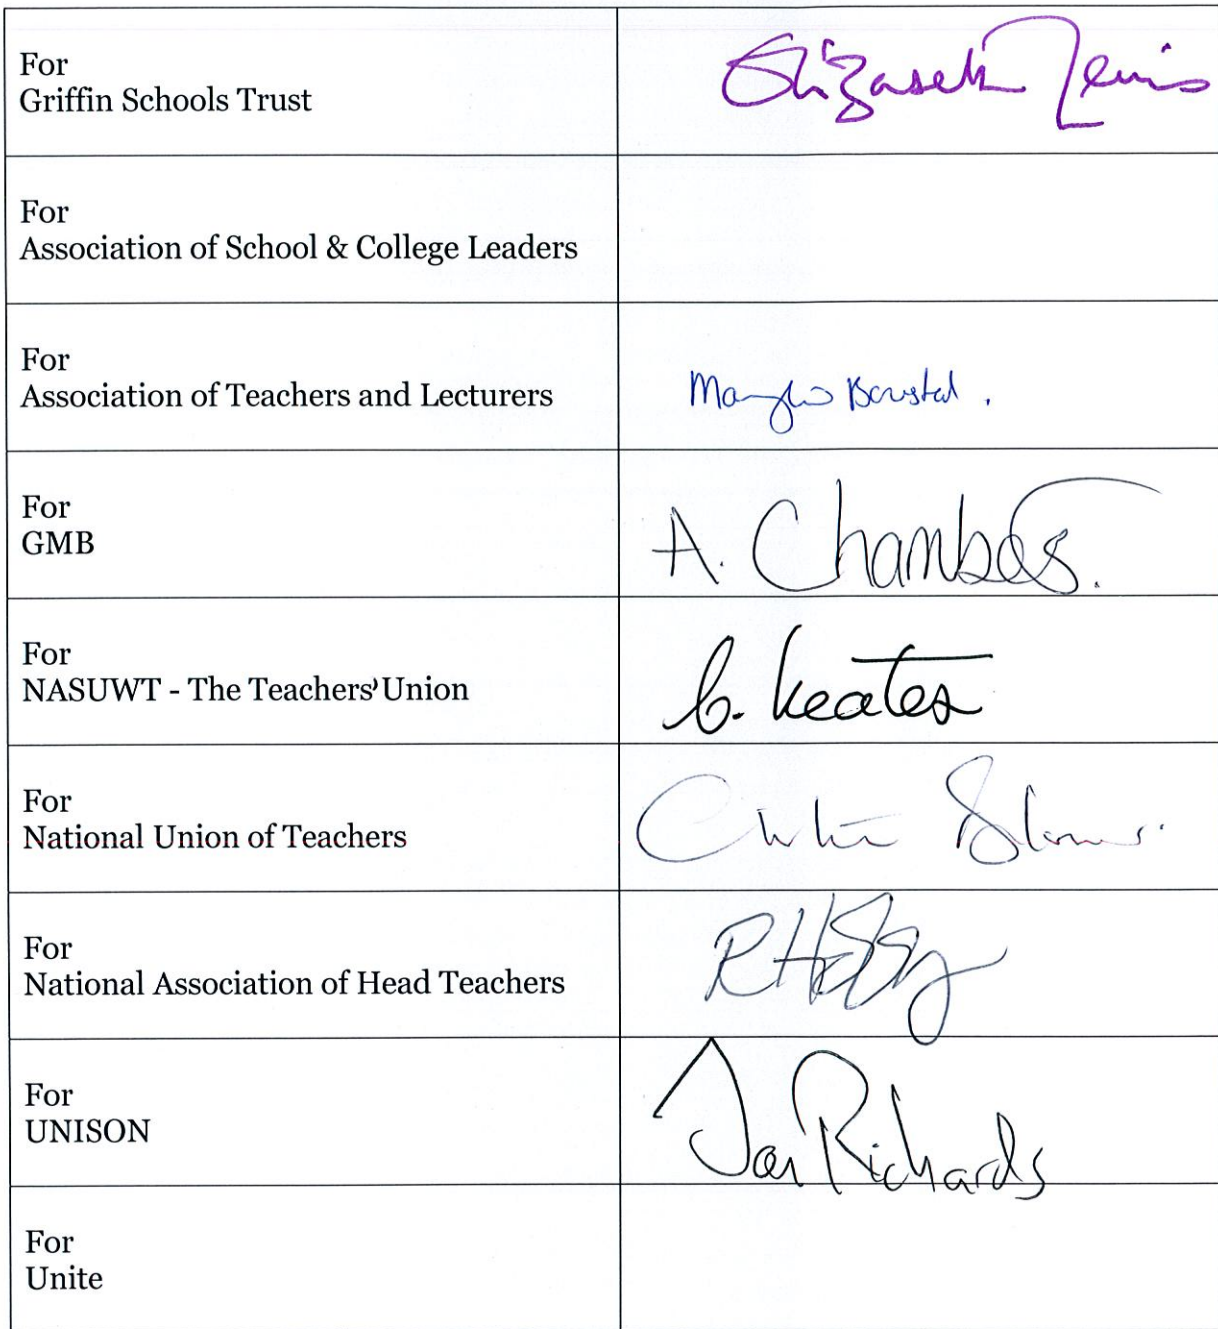 For
Griffin Schools Trust
Elizabeth Lewis
For
Association of School & College Leaders
For
Association of Teachers and Lecturers
Bousted.
For
GMB
A. Chambers.
For
NASUWT - The Teachers' Union
C. Keates
For
National Union of Teachers
For
National Association of Head Teachers
For
UNISON
Jon Richards
For
Unite